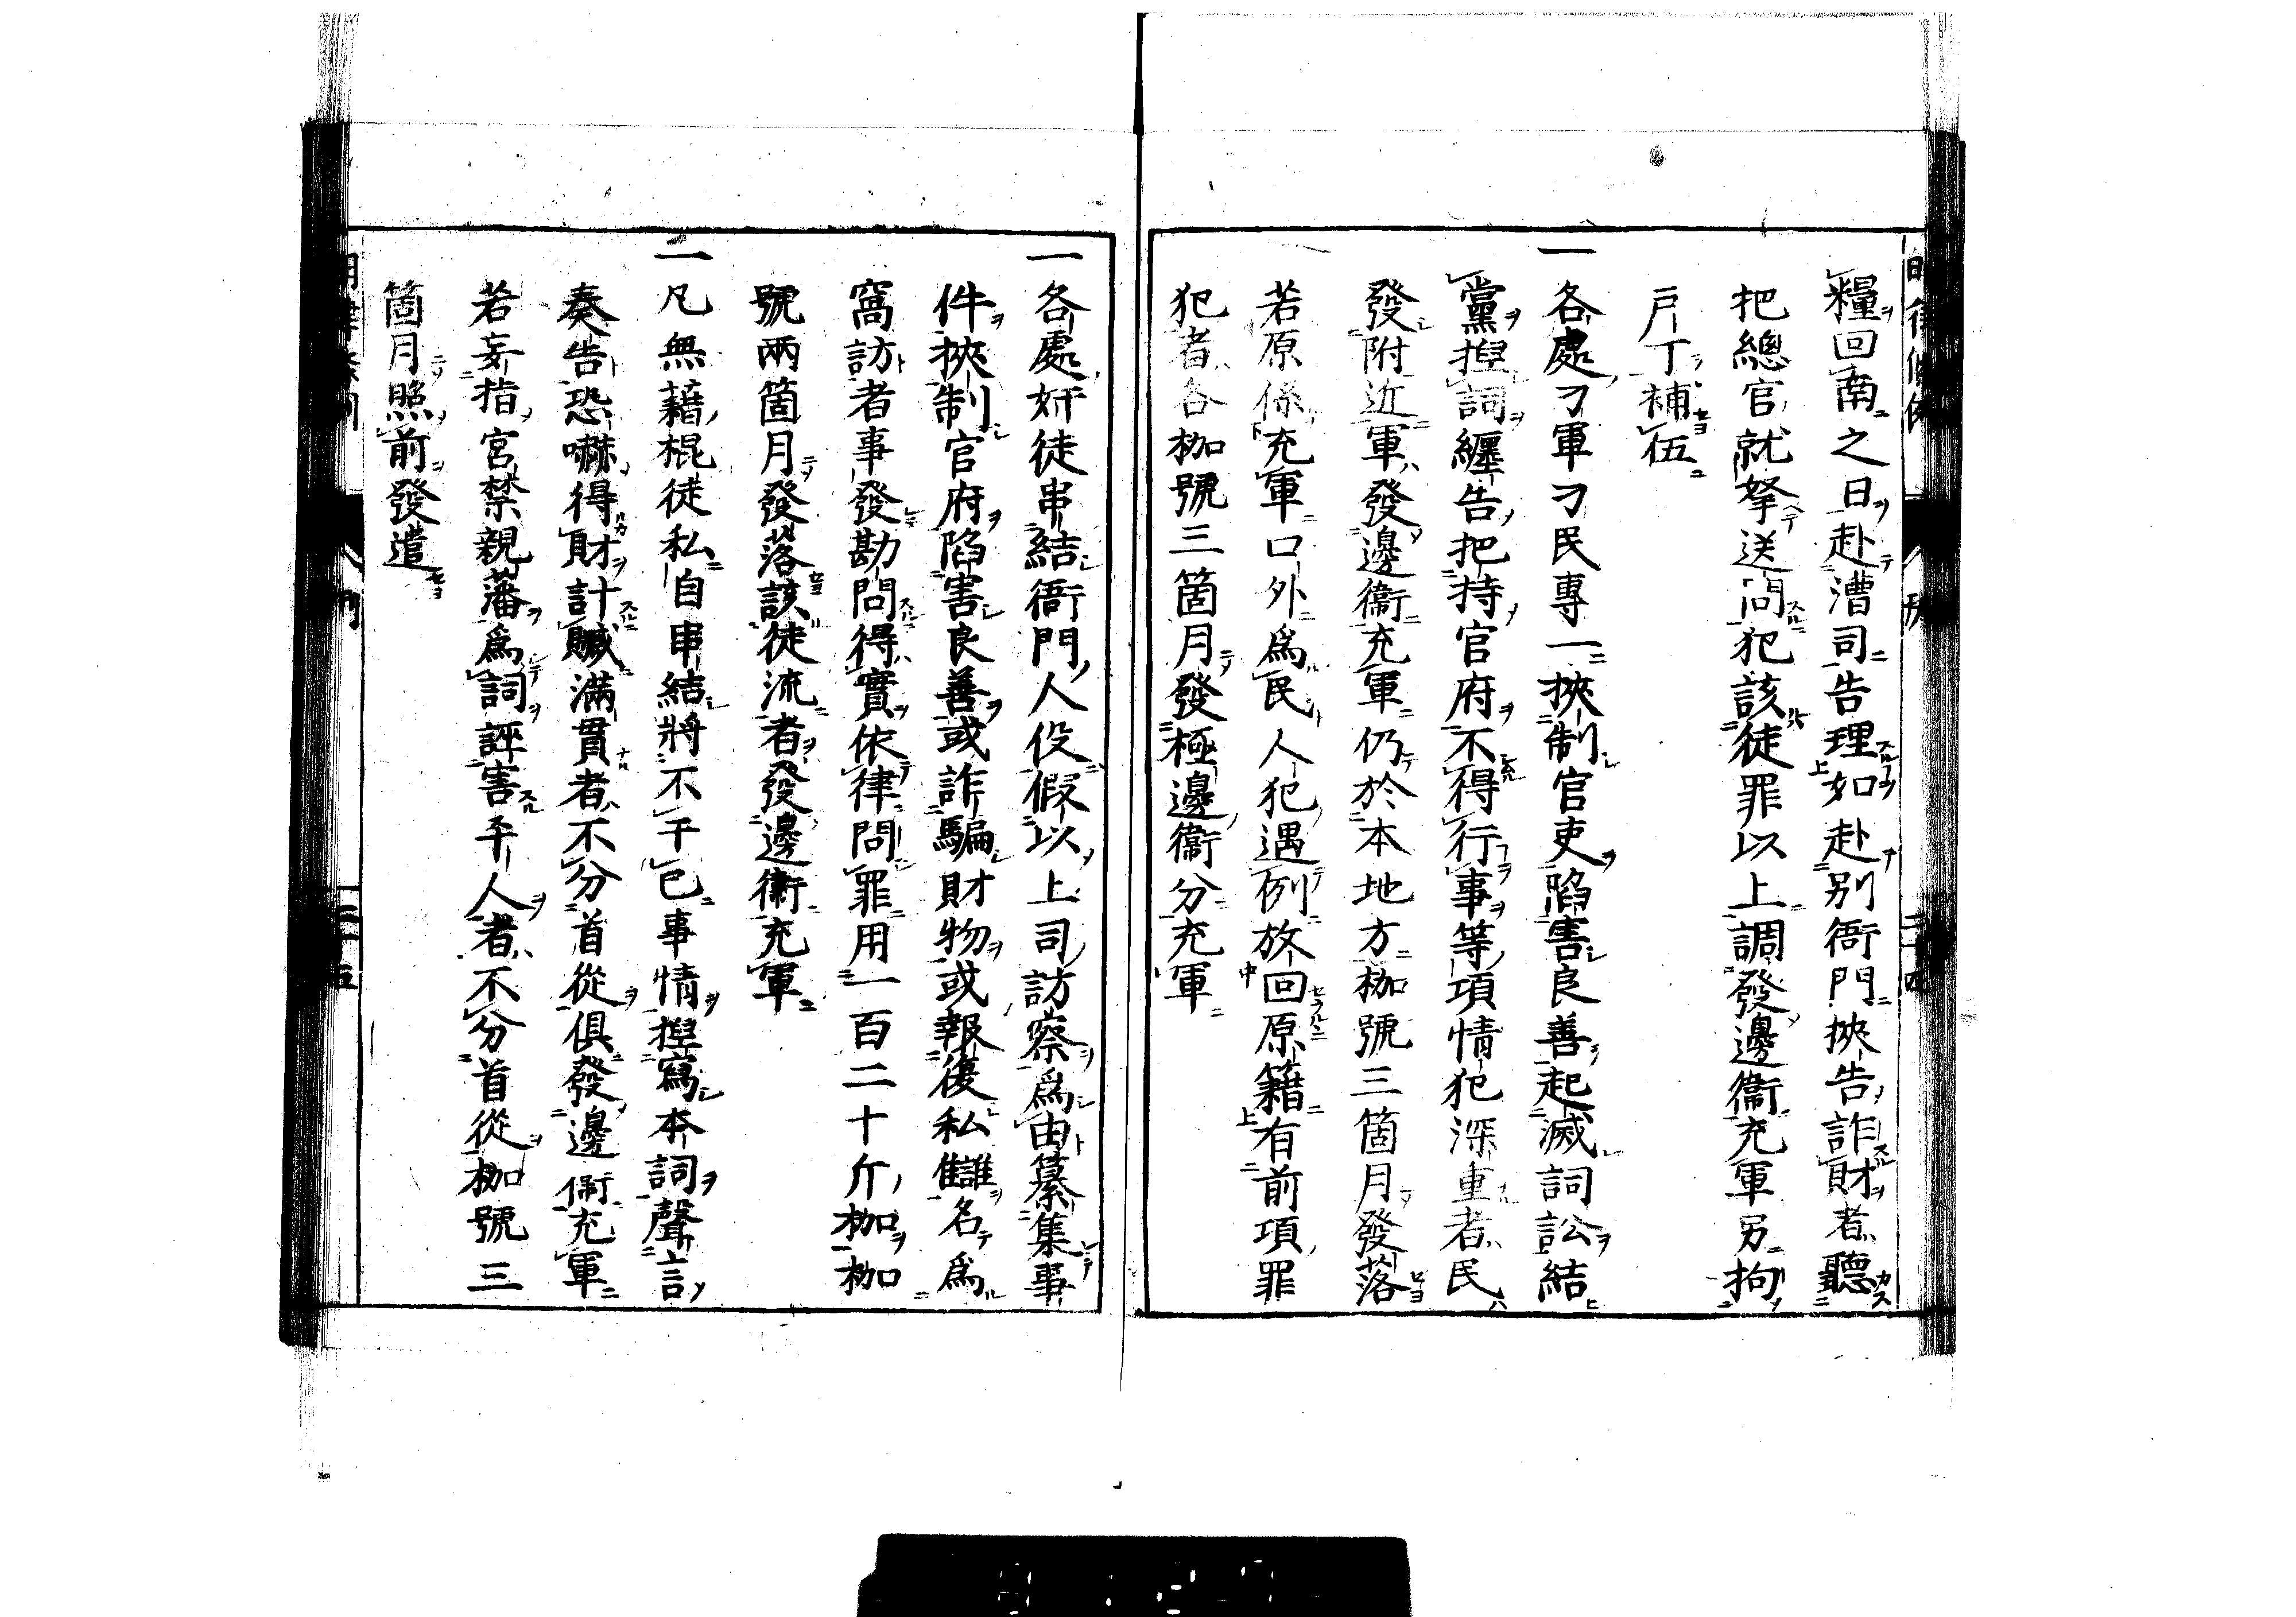 糧回南之日赴漕司告理如赴別衙門挾告詐財者聽
把總官就拏送問犯該徒罪以上調發邊衞充軍另拘
戶丁補伍
一各處刁軍刁民專一挾制官吏陷害良善起滅詞訟結
黨揑詞纏告把持官府不得行事等項情犯深重者民
發附近軍發邊衞充軍仍於本地方枷號三箇月發落
若原係充軍口外爲民人犯遇例放回原籍有前項罪
犯者各枷號三箇月發極邊衞分充軍
一各處奸徒串結衙門人役假以上司訪察爲由纂集事
件挾制官府陷害良善或詐騙財物或報復私讎名爲
窩訪者事發勘問得實依律問罪用一百二十斤枷枷
號兩箇月發落該徒流者發邊衞充軍
一凡無藉棍徒私自串結將不干已事情揑寫本詞聲言
奏告恐嚇得財計贓滿貫者不分首從俱發邊衞充軍
若妄指宮禁親藩爲詞誣害平人者不分首從枷號三
箇月照前發遣